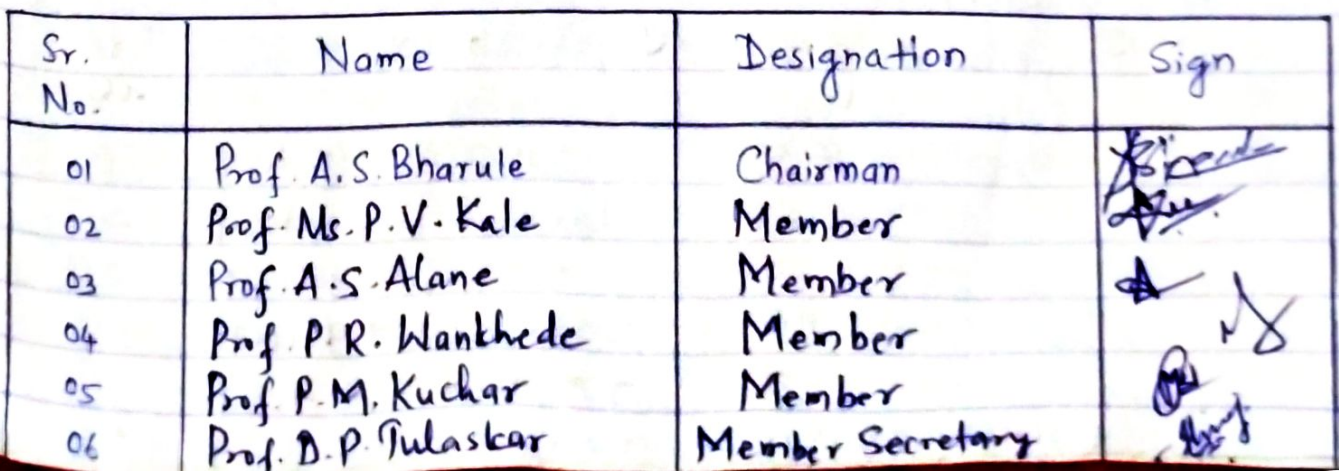 Sr. No. Name Designation Sign
01 Prof. A.S. Bharule Chairman
02 Prof. Ms. P.V. Kale Member
03 Prof. A.S. Alane Member
04 Prof. P.R. Wankhede Member
05 Prof. P.M. Kuchar Member
06 Prof. D.P. Tulaskar Member Secretary